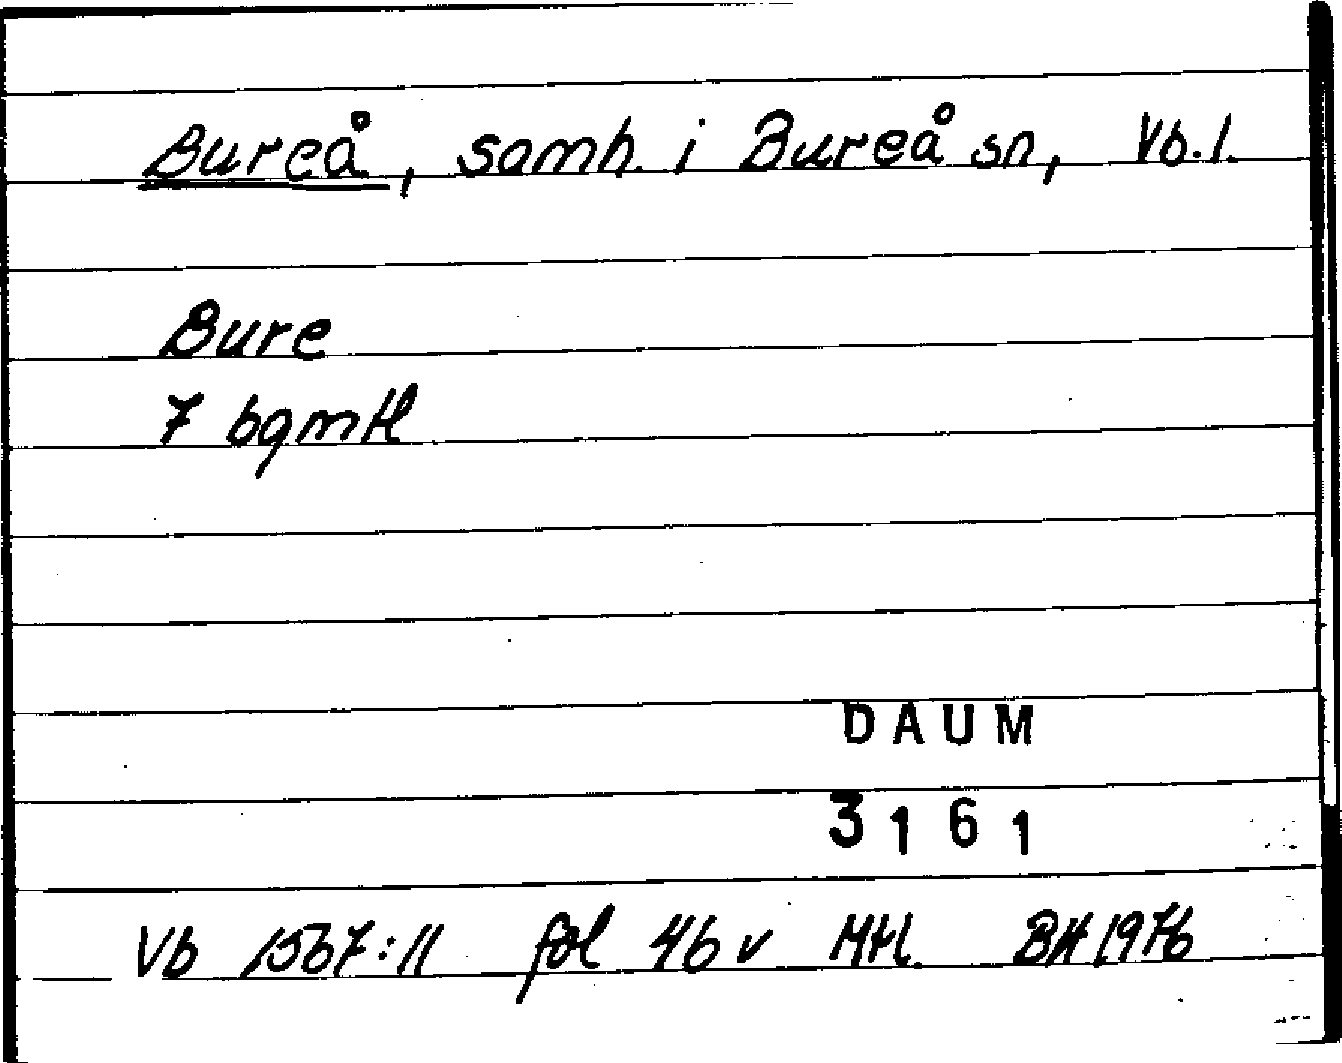 Bureå, samh. i Bureå sn, Vb.l.
Bure
7 bgmtl
DAUM
3161
Vb 1567:11 fol 46 v Mtl. BH 1976